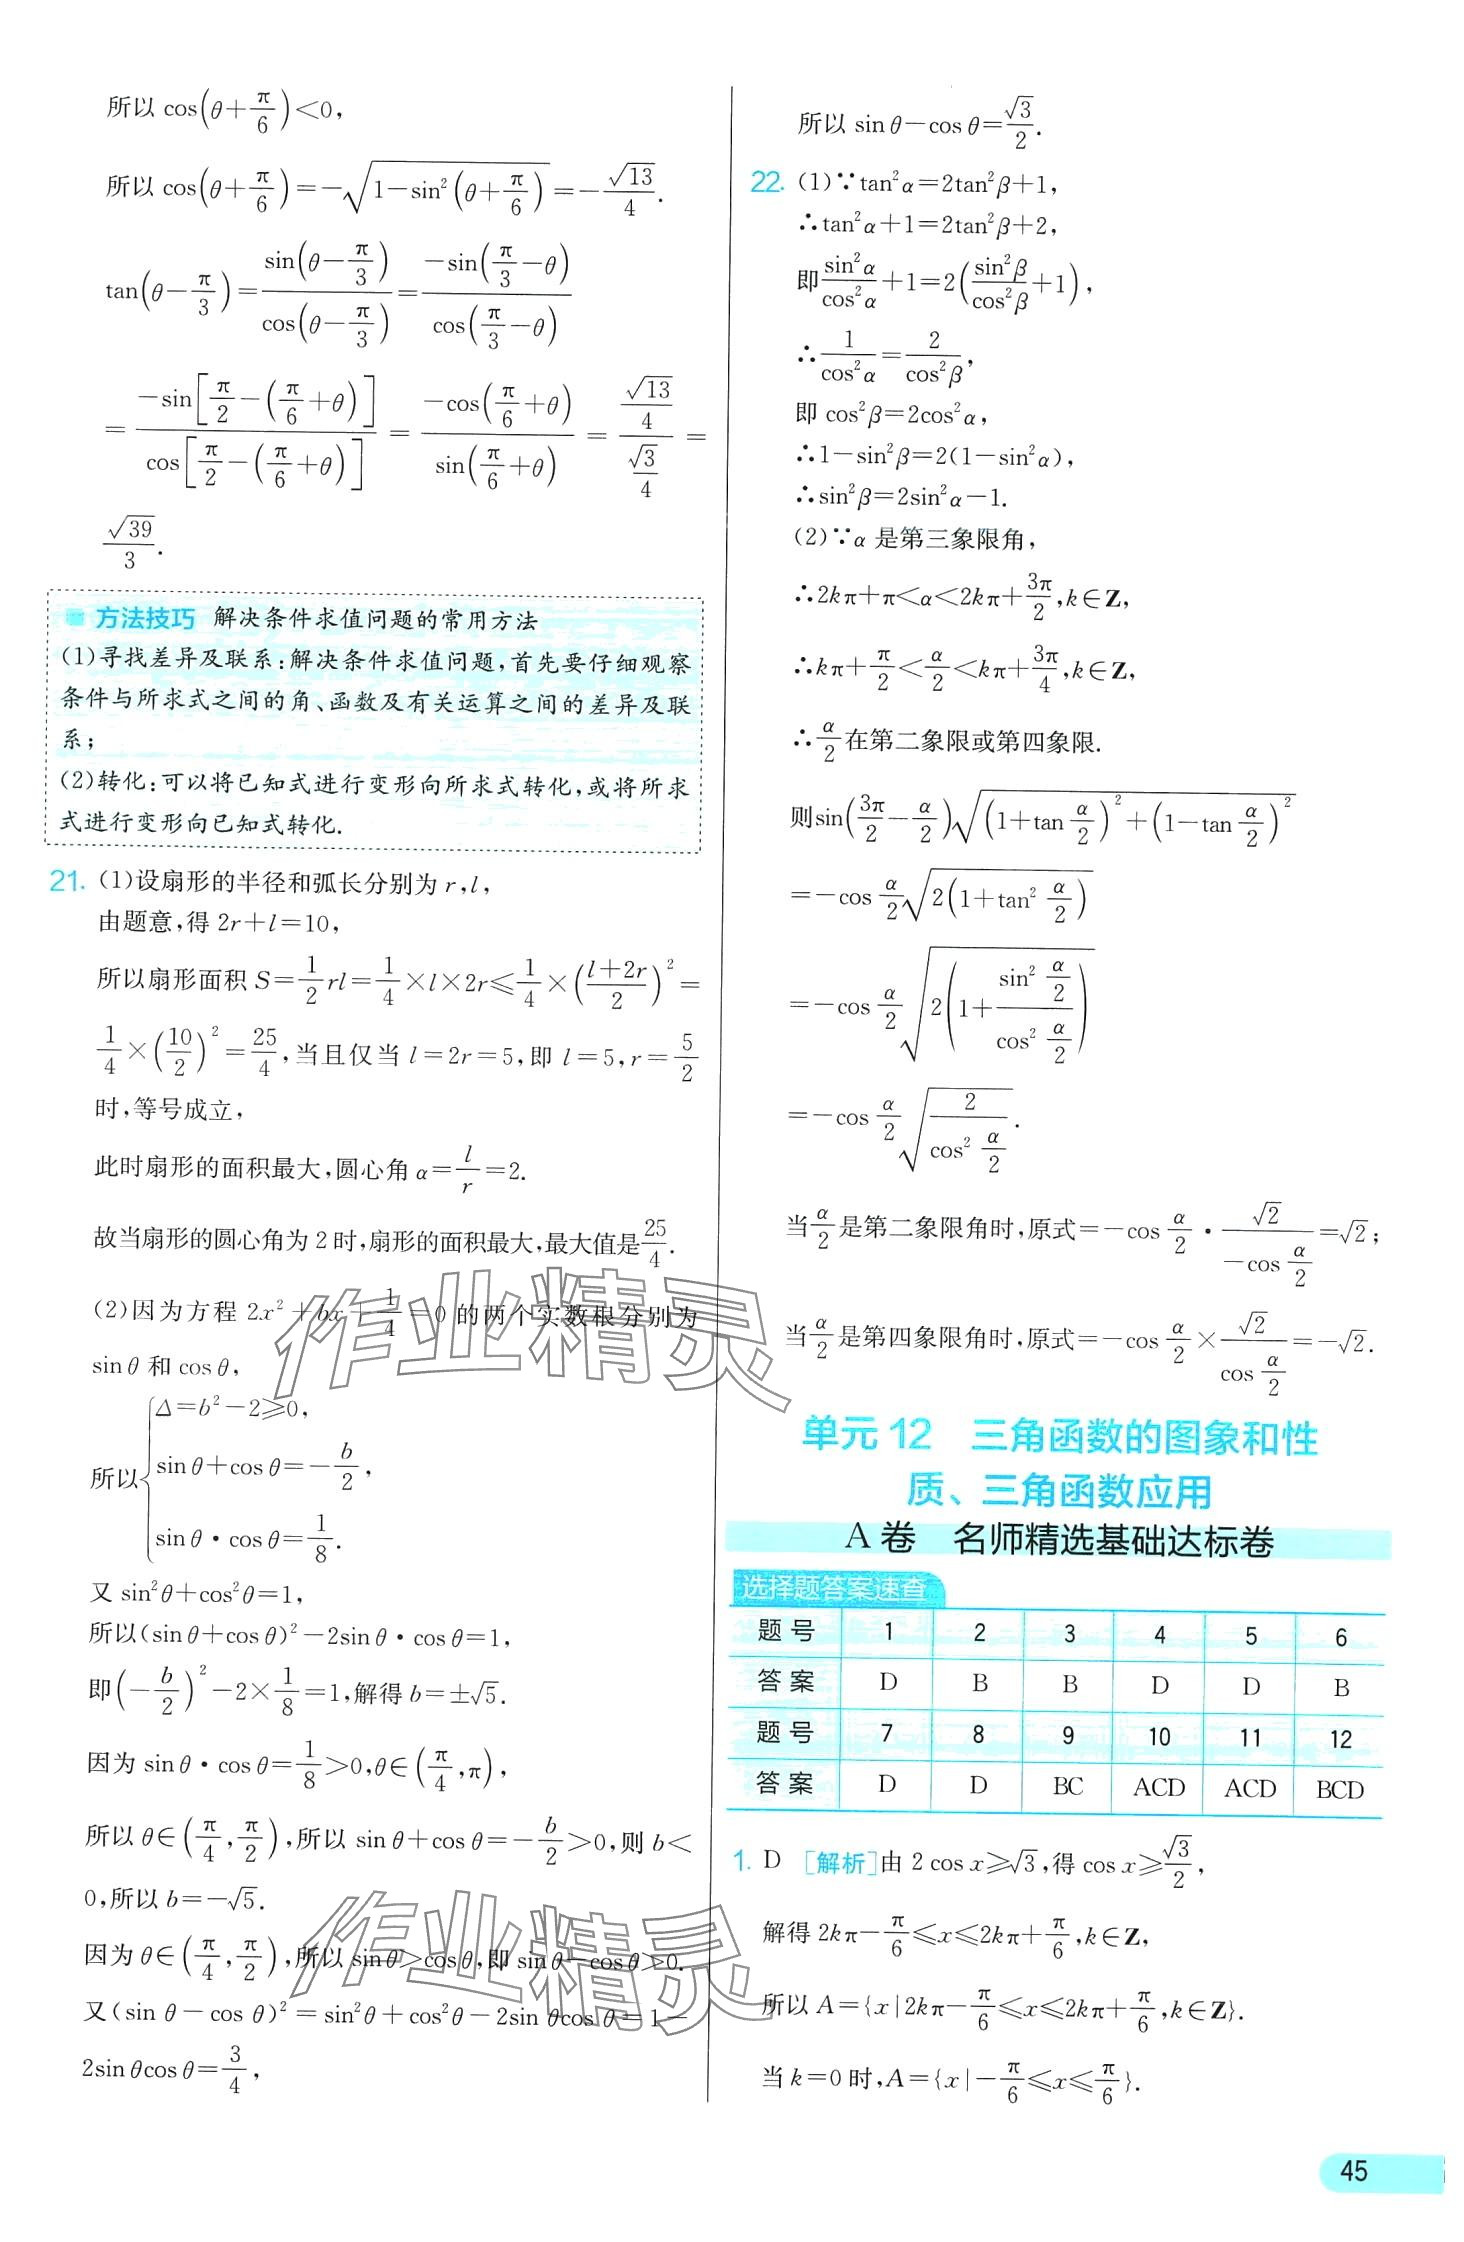 所以 cos(θ+π/6)<0,
所以 cos(θ+π/6)=-√(1-sin²(θ+π/6))=-√13/4.
tan(θ-π/3)=sin(θ-π/3)/cos(θ-π/3)=-sin(π/3-θ)/cos(π/3-θ)
=-sin[π/2-(π/6+θ)]/cos[π/2-(π/6+θ)]=-cos(π/6+θ)/sin(π/6+θ)=(√13/4)/(√3/4)=
√39/3.
方法技巧 解决条件求值问题的常用方法
(1)寻找差异及联系:解决条件求值问题,首先要仔细观察
条件与所求式之间的角、函数及有关运算之间的差异及联
系;
(2)转化:可以将已知式进行变形向所求式转化,或将所求
式进行变形向已知式转化.
21. (1)设扇形的半径和弧长分别为 r,l,
由题意,得 2r+l=10,
所以扇形面积 S=1/2 rl=1/4×l×2r≤1/4×((l+2r)/2)²=
1/4×(10/2)²=25/4,当且仅当 l=2r=5,即 l=5,r=5/2
时,等号成立,
此时扇形的面积最大,圆心角 α=l/r=2.
故当扇形的圆心角为 2 时,扇形的面积最大,最大值是25/4.
(2)因为方程 2x²+bx+1/4=0 的两个实数根分别为
sin θ 和 cos θ,
所以{Δ=b²-2≥0,
sin θ+cos θ=-b/2,
sin θ·cos θ=1/8.
又 sin²θ+cos²θ=1,
所以(sin θ+cos θ)²-2sin θ·cos θ=1,
即(-b/2)²-2×1/8=1,解得 b=±√5.
因为 sin θ·cos θ=1/8>0,θ∈(π/4,π),
所以 θ∈(π/4,π/2),所以 sin θ+cos θ=-b/2>0,则 b<
0,所以 b=-√5.
因为 θ∈(π/4,π/2),所以 sin θ>cos θ,即 sin θ-cos θ>0.
又(sin θ-cos θ)²=sin²θ+cos²θ-2sin θcos θ=1-
2sin θcos θ=3/4,
所以 sin θ-cos θ=√3/2.
22. (1)∵tan²α=2tan²β+1,
∴tan²α+1=2tan²β+2,
即sin²α/cos²α+1=2(sin²β/cos²β+1),
∴1/cos²α=2/cos²β,
即 cos²β=2cos²α,
∴1-sin²β=2(1-sin²α),
∴sin²β=2sin²α-1.
(2)∵α 是第三象限角,
∴2kπ+π<α<2kπ+3π/2,k∈Z,
∴kπ+π/2<α/2<kπ+3π/4,k∈Z,
∴α/2在第二象限或第四象限.
则sin(3π/2-α/2)√((1+tan α/2)²+(1-tan α/2)²)
=-cos α/2√(2(1+tan² α/2))
=-cos α/2√(2(1+sin² α/2/cos² α/2))
=-cos α/2√(2/cos² α/2).
当α/2是第二象限角时,原式=-cos α/2·√2/(-cos α/2)=√2;
当α/2是第四象限角时,原式=-cos α/2×√2/(cos α/2)=-√2.
单元 12 三角函数的图象和性
质、三角函数应用
A 卷 名师精选基础达标卷
选择题答案速查
题号 1 2 3 4 5 6
答案 D B B D D B
题号 7 8 9 10 11 12
答案 D D BC ACD ACD BCD
1. D [解析]由 2 cos x≥√3,得 cos x≥√3/2,
解得 2kπ-π/6≤x≤2kπ+π/6,k∈Z,
所以 A={x|2kπ-π/6≤x≤2kπ+π/6,k∈Z}.
当 k=0 时,A={x|-π/6≤x≤π/6}.
45
作业精灵
作业精灵